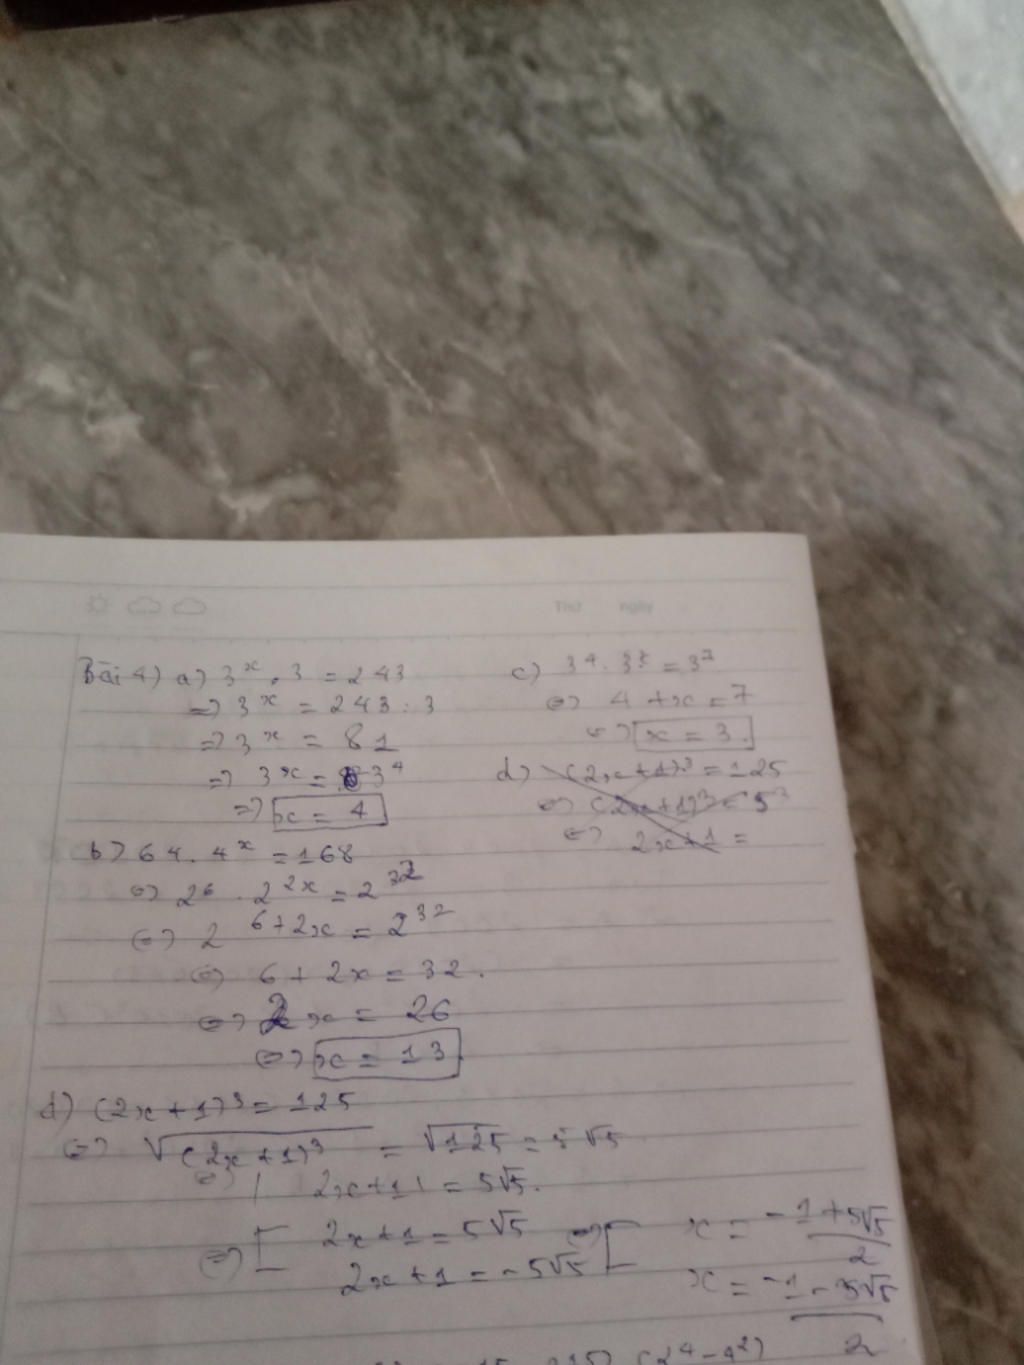 Thứ ngày
Bài 4) a) 3^x . 3 = 243
=> 3^x = 243 : 3
=> 3^x = 81
=> 3^x = 3^4
=> x = 4
b) 64 . 4^x = 168
<=> 2^6 . 2^2x = 2^32
<=> 2^6+2x = 2^32
<=> 6 + 2x = 32.
<=> 2x = 26
<=> x = 13
c) 3^4 . 3^x = 3^7
<=> 4 + x = 7
<=> x = 3.
d) (2x+1)^3 = 125
<=> (2x+1)^3 = 5^3
<=> 2x+1 =
d) (2x+1)^3 = 125
<=> √(2x+1)^3 = √125 = 5√5
<=> |2x+1| = 5√5.
<=> [ 2x+1 = 5√5 <=> [ x = -1+5√5 / 2
2x+1 = -5√5 x = -1-5√5 / 2
(2^4-4^2)